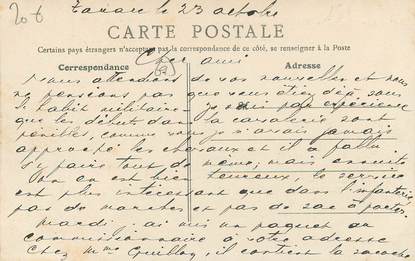 20 €
Tarare le 23 octobre
CARTE POSTALE
Certains pays étrangers n'acceptant pas la correspondance de ce côté, se renseigner à la Poste
Correspondance
Adresse
Cher ami
Nous attendions de vos nouvelles et nous
ne pensions pas que vous étiez déjà sous
l'habit militaire je sais par expérience
que les débuts dans la cavalerie sont
pénibles, comme vous je n'avais jamais
approché les chevaux et il a fallu
s'y faire tout de même, mais ensuite
on en est bien heureux, le service
est plus intéressant que dans l'infanterie
pas de marches et pas de sac à porter
mardi j'ai mis un paquet au
commissionnaire à votre adresse
chez Mme il contient la sacoche